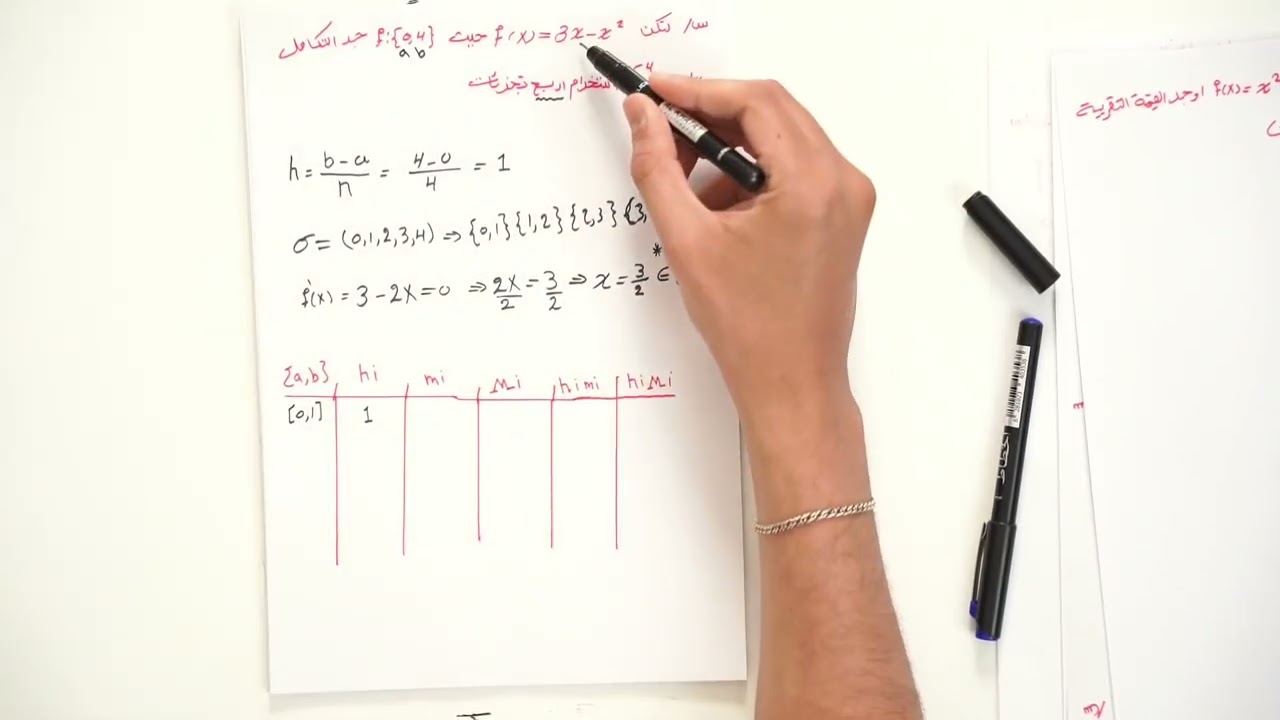 س/ لتكن f(x)=3x-x² حيث f:{0,4} جد التكامل
a b
4 استخدام اربع تجزيئات
h = b-a/n = 4-0/4 = 1
σ = (0,1,2,3,4) ⇒ {0,1}{1,2}{2,3}{3,
*
f'(x) = 3-2x=0 ⇒ 2x/2 = 3/2 ⇒ x = 3/2 ∈
{a,b} hi mi Mi himi hiMi
[0,1] 1
f(x)=x² اوجد القيمة التقريبية
الخطاط